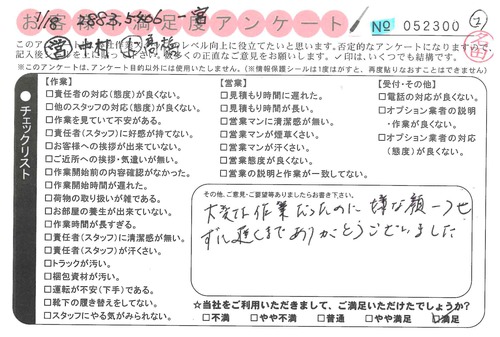 1/8 2883,5800
お客様満足度アンケート
№ 052300
㊂ 中村 高橋
記入後
※このアンケートは、アンケート目的以外には使用いたしません。(情報保護シールは1度はがすと、再度貼りなおすことはできません)
チェックリスト
【作業】
□責任者の対応(態度)が良くない。
□他のスタッフの対応(態度)が良くない。
□作業を見ていて不安がある。
□責任者(スタッフ)に好感が持てない。
□お客様への挨拶が出来ていない。
□ご近所への挨拶・気遣いが無い。
□作業開始前の内容確認がなかった。
□作業開始時間が遅れた。
□荷物の取り扱いが雑である。
□お部屋の養生が出来ていない。
□作業時間が長すぎる。
□責任者(スタッフ)に清潔感が無い。
□責任者(スタッフ)が汗くさい。
□トラックが汚い。
□梱包資材が汚い。
□運転が不安(下手)である。
□靴下の履き替えをしてない。
□スタッフにやる気がみられない。
【営業】
□見積もり時間に遅れた。
□見積もり時間が長い。
□営業マンに清潔感が無い。
□営業マンが煙草くさい。
□営業マンが汗くさい。
□営業態度が良くない。
□営業の説明と作業が一致してない。
【受付・その他】
□電話の対応が良くない。
□オプション業者の説明・作業が良くない。
□オプション業者の対応(態度)が良くない。
その他、ご意見・ご要望等ありましたらお書き下さい。
大変な作業だったのに 嫌な顔一つせ
ずに遅くまでありがとうございました
☆当社をご利用いただきまして、ご満足いただけたでしょうか?
□不満 □やや不満 □普通 □やや満足 □満足